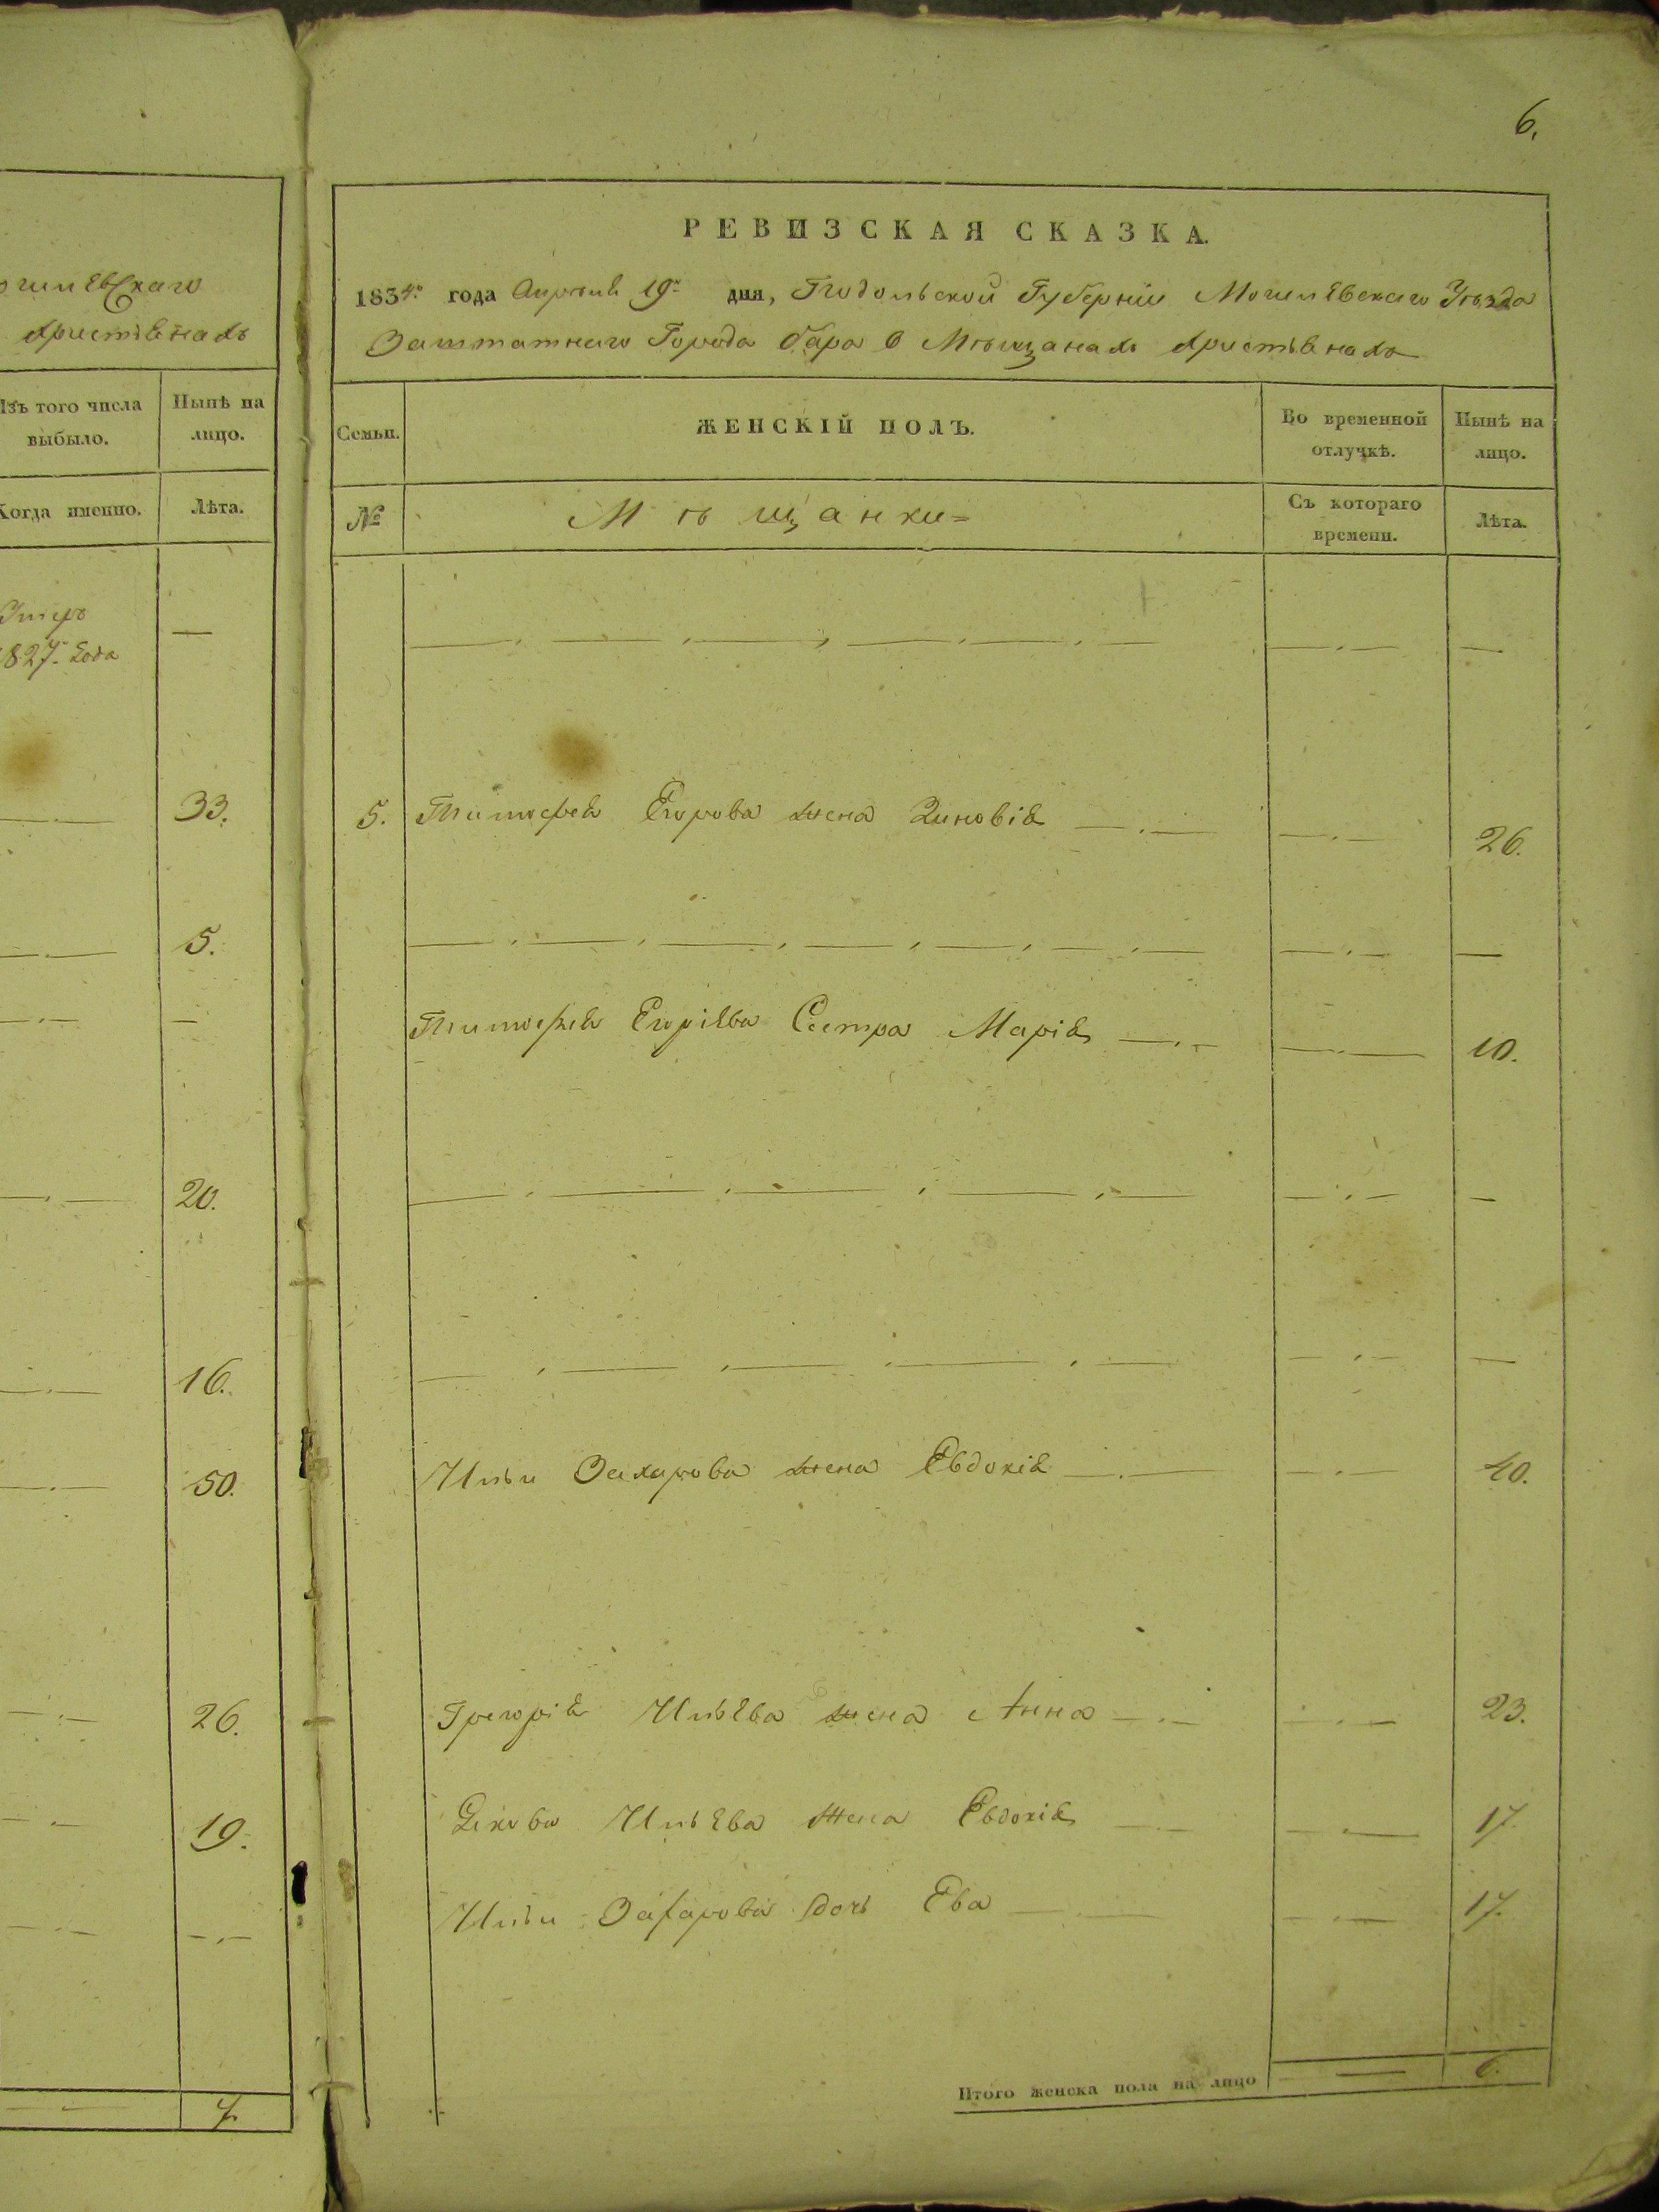 огилевскаго
христіянахъ
Изъ того числа выбыло.
Нынѣ на лицо.
Когда именно.
Лѣта.
Умеръ
1827. Года
—
33.
5.
—
20.
16.
50.
26.
19.
7.
6.
РЕВИЗСКАЯ СКАЗКА.
1834го года Апрѣля 19го дня, Подольской Губерніи Могилевскаго Уѣзда
Заштатнаго Города Бара о Мѣщанахъ христіянахъ
Семьи.
ЖЕНСКІЙ ПОЛЪ.
Во временной отлучкѣ.
Нынѣ на лицо.
№
Мѣщанки
Съ котораго времени.
Лѣта.
5. Тимофея Егорова жена Зиновія 26.
Тимофея Егоріева Сестра Марія 10.
Ильи Захарова жена Евдокія 40.
Григорія Ильева жена Анна 23.
Якова Ильева жена Евдокія 17
Ильи Захарова дочь Ева 17.
Итого женска пола на лицо 6.